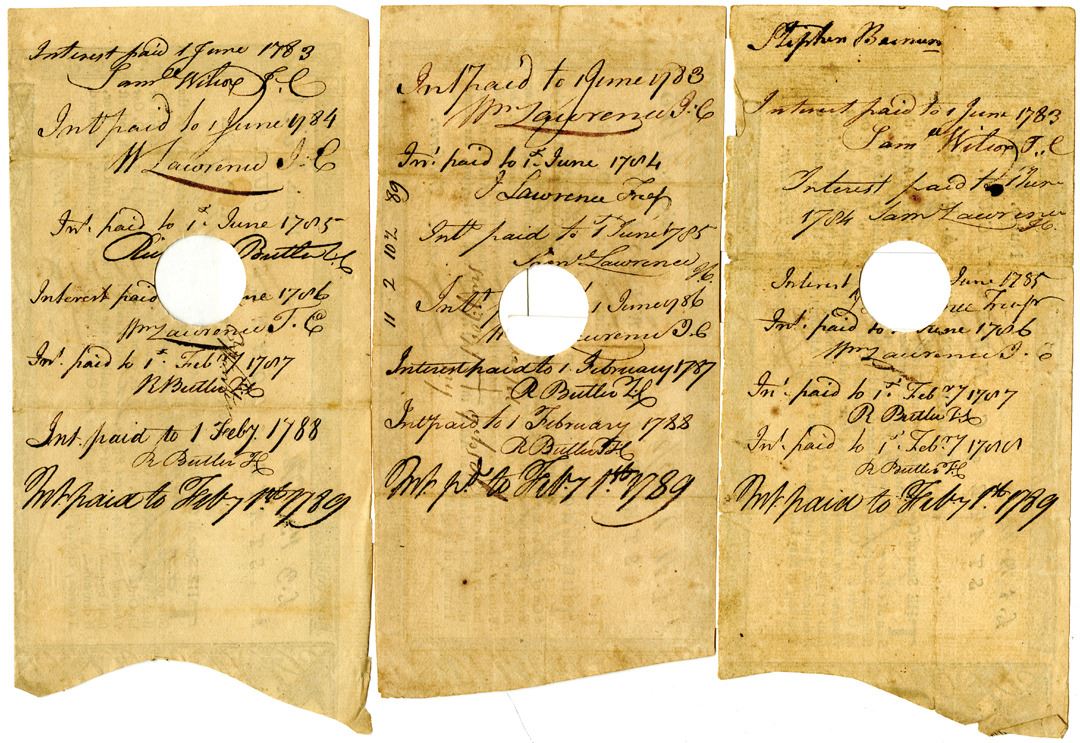 Interest paid 1 June 1783
Sam.ll Wilcox T.C
Int paid to 1 June 1784
W Lawrence T.C
Int. paid to 1st June 1785
Butler
Interest paid
ne 1786
Wm Lawrence T.C
Int. paid to 1st Feby 1787
R Butler
Int. paid to 1 Feby. 1788
R Butler
Int. paid to Feby 1st. 1789
Int paid to 1 June 1783
Wm Lawrence T.C
Int. paid to 1st June 1784
J Lawrence Tresr
Int paid to 1 June 1785
Lawrence
Int
1 June 1786
W
wrence T.C
Interest paid to 1 February 1787
R Butler
Int paid to 1 February 1788
R Butler
Int. pd. to Feby 1st. 1789
11 2 10½ 89
Stephen Barnum
Interest paid to 1 June 1783
Sam.ll Wilcox T.C
Interest paid to 1 June
1784 Sam Lawrence
Interest
June 1785
nce Tresr
Int. paid to 1 June 1786
Wm Lawrence T.C
Int. paid to 1st Feby 1787
R Butler
Int. paid to 1st Feby 1788
R Butler
Int. paid to Feby 1st. 1789